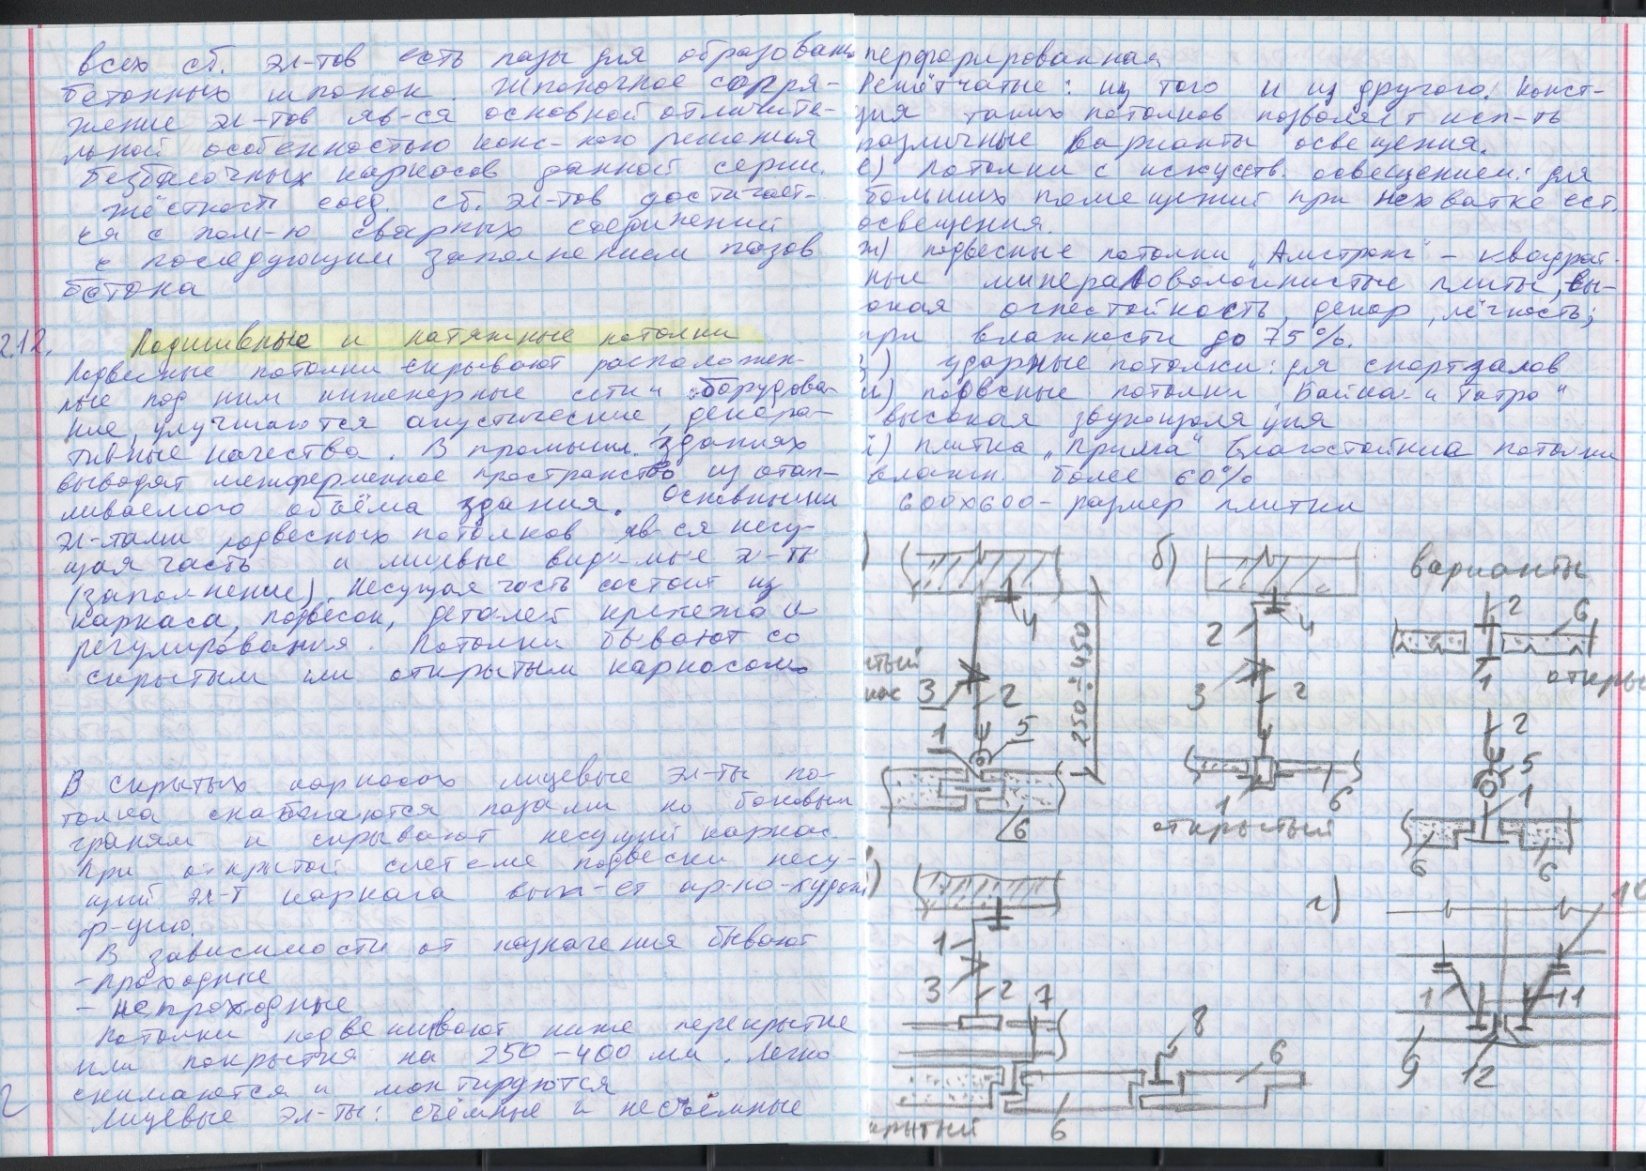 всех сб. эл-тов есть пазы для образован.
бетонных шпонок. Шпоночное сопря-
жение эл-тов яв-ся основной отличите-
льной особенностью конс-кого решения
безбалочных каркасов данной серии.
Жёсткость соед. сб. эл-тов достигает-
ся с пом-ю сварных соединений
с последующим заполнением пазов
бетона
212. Подшивные и натяжные потолки
Подвесные потолки скрывают расположен-
ные под ним инженерные сети и оборудова-
ние, улучшаются акустические, декора-
тивные качества. В промышл. зданиях
выводят межферменное пространство из отап-
ливаемого объёма здания. Основными
эл-тами подвесных потолков яв-ся несу-
щая часть и лицевые видимые эл-ты
(заполнение). Несущая часть состоит из
каркаса, подвесок, деталей крепежа и
регулирования. Потолки бывают со
скрытым или открытым каркасом
В скрытых каркасах лицевые эл-ты по-
толка снабжаются пазами по боковым
граням и скрывают несущий каркас
При открытой системе подвески несу-
щий эл-т каркаса вып-ет ар-но-худож
ф-цию.
В зависимости от назначения бывают
- проходные
- непроходные
Потолки подвешивают ниже перекрытие
или покрытия на 250-400 мм. Легко
снимаются и монтируются
Лицевые эл-ты: съёмные и несъёмные
перфорированная
Решётчатые: из того и из другого. Конст-
ция таких потолков позволяет исп-ть
различные варианты освещения.
е) Потолки с искусств. освещением: для
больших помещений при нехватке ест.
освещения.
ж) подвесные потолки "Амстронг" - квадрат-
ные минераловолокнистые плиты, вы-
окая огнестойкость, декор, лёгкость;
при влажности до 75%.
) ударные потолки: для спортзалов
и) подвесные потолки "Байкал и Татра"
высокая звукоизоляция
) плитка "Прима" влагостойкие потолки
влажн. более 60%
600x600 - размер плитки
)
4
тый
кас
3
2
1
5
6
250÷450
б)
2
4
3
2
1
6
открытый
варианты
2
6
1
откры
2
5
1
6
6
)
1
3
2
7
8
6
6
крытый
г)
1
11
9
12